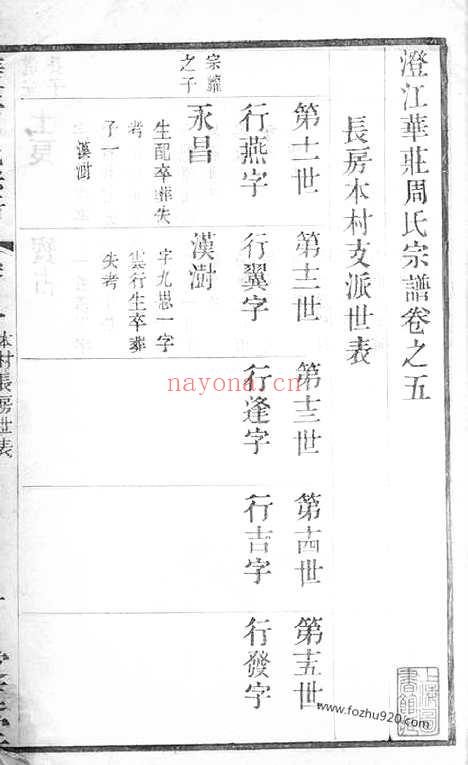 澄江華莊周氏宗譜卷之五
長房本村支派世表
第十一世
第十二世
第十三世
第十四世
第十五世
行燕字
行翼字
行逢字
行吉字
行發字
宗
之子
永昌
生配卒葬失
考
子一
漢澍
漢澍
字九思一字
雲行生卒葬
失考
本村長房世表
上海圖
書館藏
nayona.cn
www.fozhu920.com